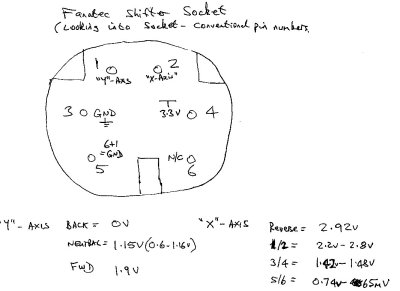 Fanatec Shifter Socket
(Looking into Socket - conventional pin numbers.
1 2
"Y"-AXIS "X-Axis"
3 GND 3.3V 4
6+1
=GND N/C
5 6
"Y"- AXIS BACK = 0V "X"-AXIS Reverse = 2.92v
NEUTRAL = 1.15V (0.6-1.6V) 1/2 = 2.2v-2.8v
3/4 = 1.42v-1.48v
FWD 1.9V 5/6 = 0.74v - 65mV